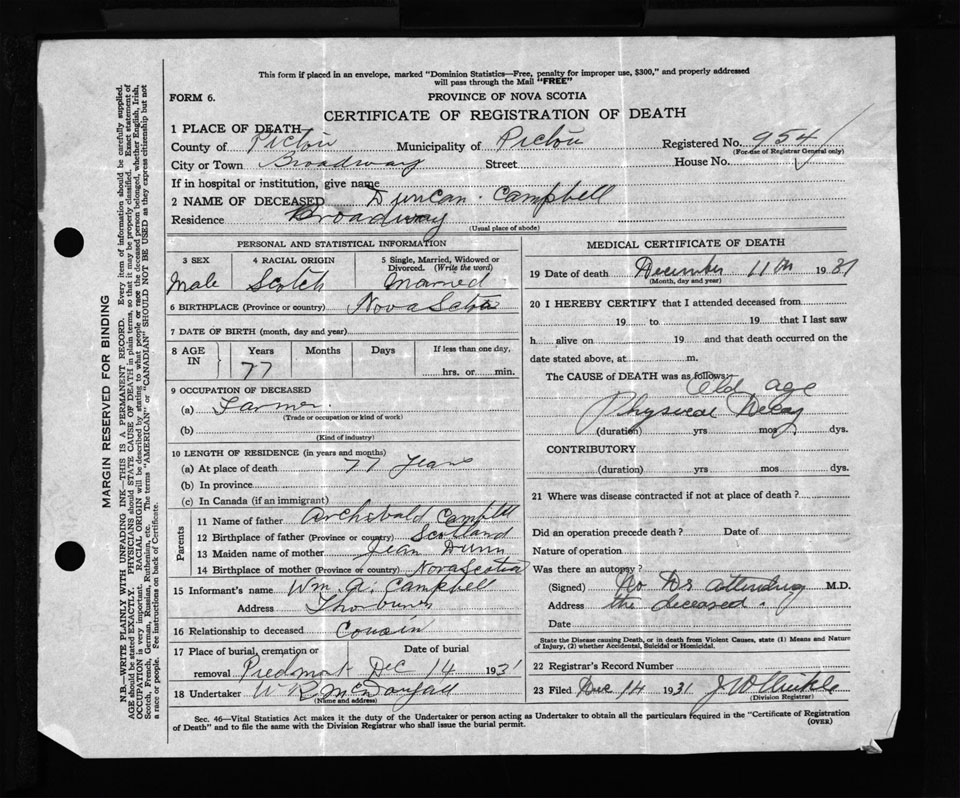 This form if placed in an envelope, marked "Dominion Statistics—Free, penalty for improper use, $300," and properly addressed
will pass through the Mail "FREE"
FORM 6.
PROVINCE OF NOVA SCOTIA
CERTIFICATE OF REGISTRATION OF DEATH
1 PLACE OF DEATH
County of Pictou Municipality of Pictou Registered No. 954
(For use of Registrar General only)
City or Town Broadway Street House No.
If in hospital or institution, give name
2 NAME OF DECEASED Duncan Campbell
Residence Broadway
(Usual place of abode)
PERSONAL AND STATISTICAL INFORMATION
3 SEX 4 RACIAL ORIGIN 5 Single, Married, Widowed or
Divorced. (Write the word)
Male Scotch Married
6 BIRTHPLACE (Province or country) Nova Scotia
7 DATE OF BIRTH (month, day and year)
8 AGE IN Years Months Days If less than one day,
77 hrs. or min.
9 OCCUPATION OF DECEASED
(a) Farmer
(Trade or occupation or kind of work)
(b)
(Kind of industry)
10 LENGTH OF RESIDENCE (in years and months)
(a) At place of death 77 Years
(b) In province
(c) In Canada (if an immigrant)
Parents
11 Name of father Archibald Campbell
12 Birthplace of father (Province or country) Scotland
13 Maiden name of mother Jean Dunn
14 Birthplace of mother (Province or country) Nova Scotia
15 Informant's name Wm. A. Campbell
Address Thorburn
16 Relationship to deceased Cousin
17 Place of burial, cremation or Date of burial
removal Piedmont Dec 14 1931
18 Undertaker W R McDougall
(Name and address)
MEDICAL CERTIFICATE OF DEATH
19 Date of death December 11th 1931
(Month, day and year)
20 I HEREBY CERTIFY that I attended deceased from
19 to 19 that I last saw
h alive on 19 and that death occurred on the
date stated above, at m.
The CAUSE of DEATH was as follows: Old age
Physical Decay
(duration) yrs mos. dys.
CONTRIBUTORY
(duration) yrs mos dys.
21 Where was disease contracted if not at place of death?
Did an operation precede death? Date of
Nature of operation
Was there an autopsy?
(Signed) No Dr attending M.D.
Address the deceased.
Date
State the Disease causing Death, or in death from Violent Causes, state (1) Means and Nature
of Injury, (2) whether Accidental, Suicidal or Homicidal.
22 Registrar's Record Number
23 Filed Dec 14 1931
(Division Registrar)
Sec. 46—Vital Statistics Act makes it the duty of the Undertaker or person acting as Undertaker to obtain all the particulars required in the "Certificate of Registration
of Death" and to file the same with the Division Registrar who shall issue the burial permit. (OVER)
MARGIN RESERVED FOR BINDING
N.B.—WRITE PLAINLY WITH UNFADING INK—THIS IS A PERMANENT RECORD. Every item of information should be carefully supplied.
AGE should be stated EXACTLY. PHYSICIANS should STATE CAUSE OF DEATH in plain terms, so that it may be properly classified. Exact statement of
OCCUPATION is very important. RACIAL ORIGIN will be described by stating to what people or race the deceased person belonged, whether English, Irish,
Scotch, French, German, Russian, Ruthenian, etc. The terms "AMERICAN" or "CANADIAN" SHOULD NOT BE USED as they express citizenship but not
a race or people. See instructions on back of Certificate.